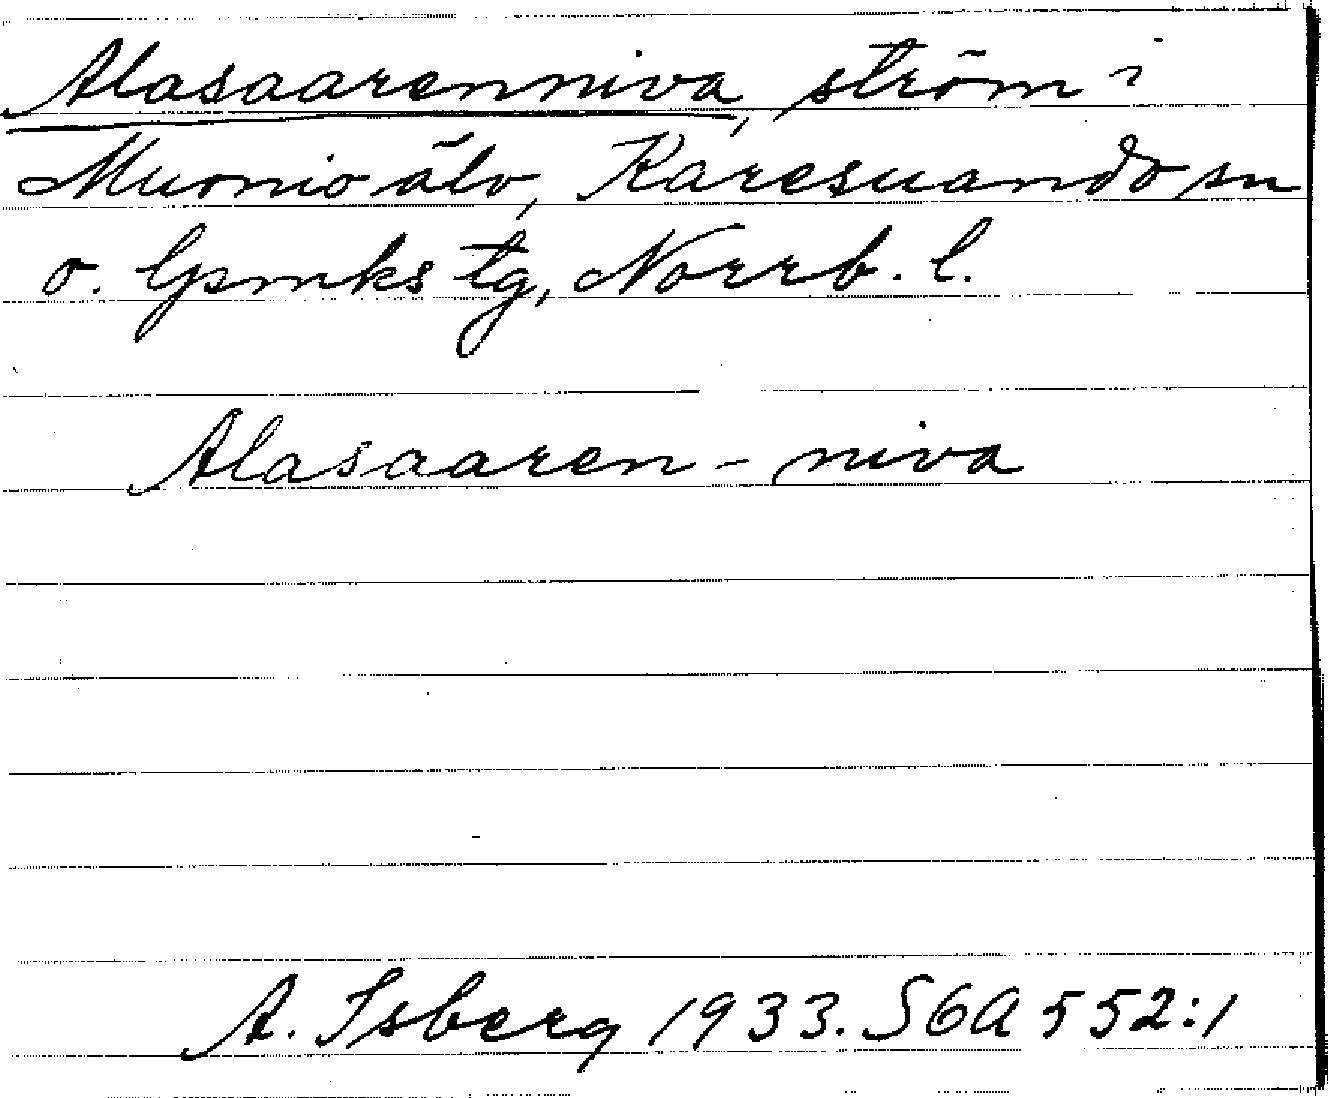 Alasaarenniva, ström i
Muonio älv, Karesuando sn
o. lpmks tg, Norrb. l.
Alasaaren - niva
A. Isberg 1933. SGA 552:1